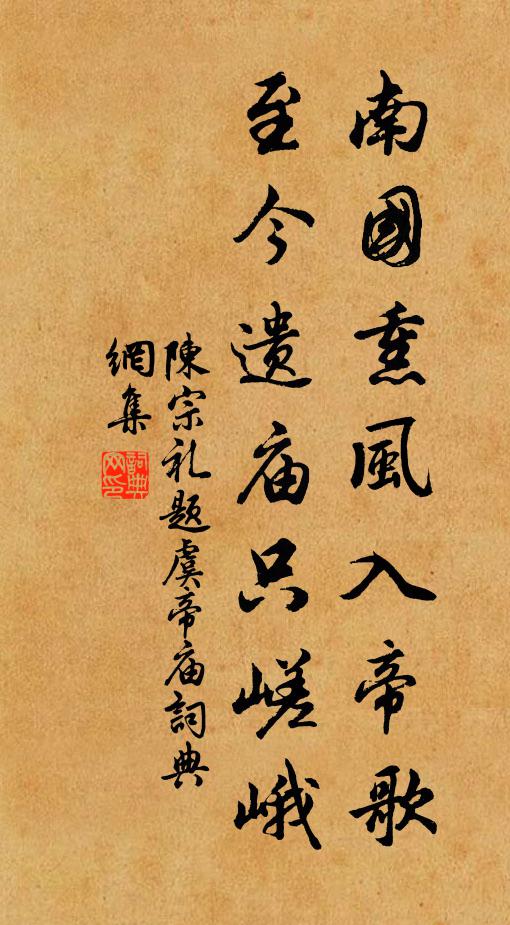 南國熏風入帝歌
至今遺庙只嵯峨
陳宗礼题虞帝庙詞典
網集
詞典
网印